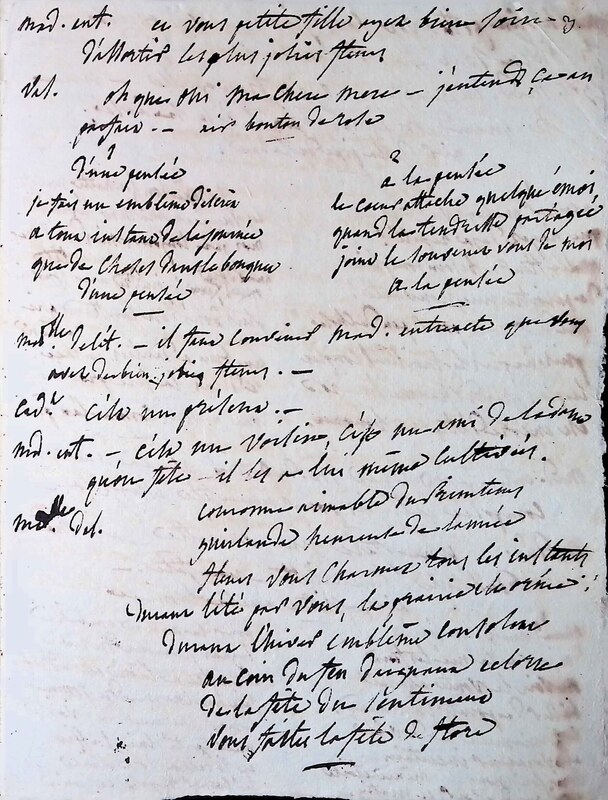 mad. ent. et vous petite fille ayez bien soin
d'assortir les plus jolies fleurs
Val. oh que oui ma chere mere – j'entend
– air bouton de rose
1
d'une pensée
je fais un emblême
a tous instans de la journée
que de choses dans le bouquet
d'une pensée
2
a la pensée
le coeur attache quelque émoi
quand la tendresse partagée
joint le souvenir vous et moi
a la pensée
melle delit. – il faut convenir mad. entracte que vous
avez de bien jolies fleurs. –
cad. c'est un présent. –
md. ent. – c'est un voisin, c'est un ami de la dame
qu'on fête – il les a lui même cultivées.
melle del. couronne aimable du Printems
guirlande heureuse de l'année
fleurs vous charmez tous les instants
durant l'été par vous, la prairie est ornée:
durant l'hiver emblême consolant
au coin du feu eclore
de la fête du sentiment
vous faites la fête de flore